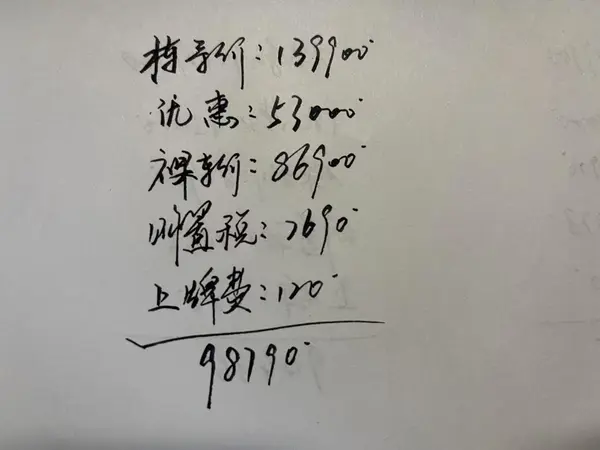 指导价:139900
优惠:53000
裸车价:86900
购置税:7690
上牌费:120
98790